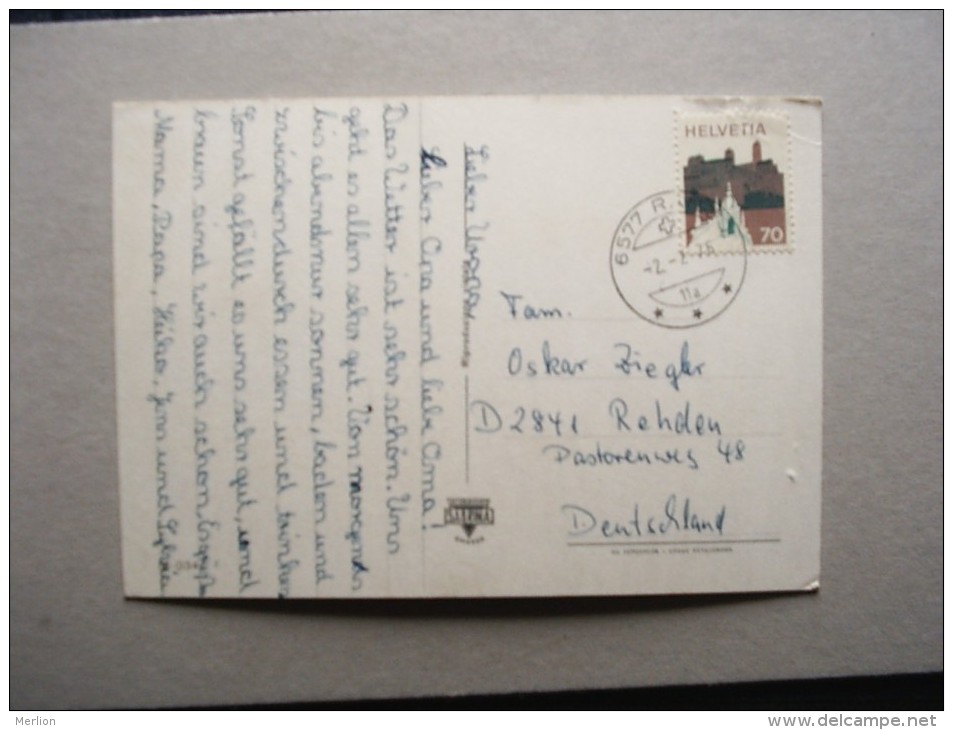 Lieber
Lieber Opa und liebe Oma!
Das Wetter ist sehr schön. Uns
geht es allen sehr gut. Von morgends
bis abends nur sonnen, baden und
zwischendurch essen und trinken
Sonst gefällt es uns sehr gut, und
braun sind wir auch schon. Es grüßen
Mama, Papa, Heiko, Jörn und
HELVETIA
70
6577 R
-2.-
11a
Fam.
Oskar Ziegler
D 2841 Rehden
Pastorenweg 48
Deutschland
Merlion
www.delcampe.net